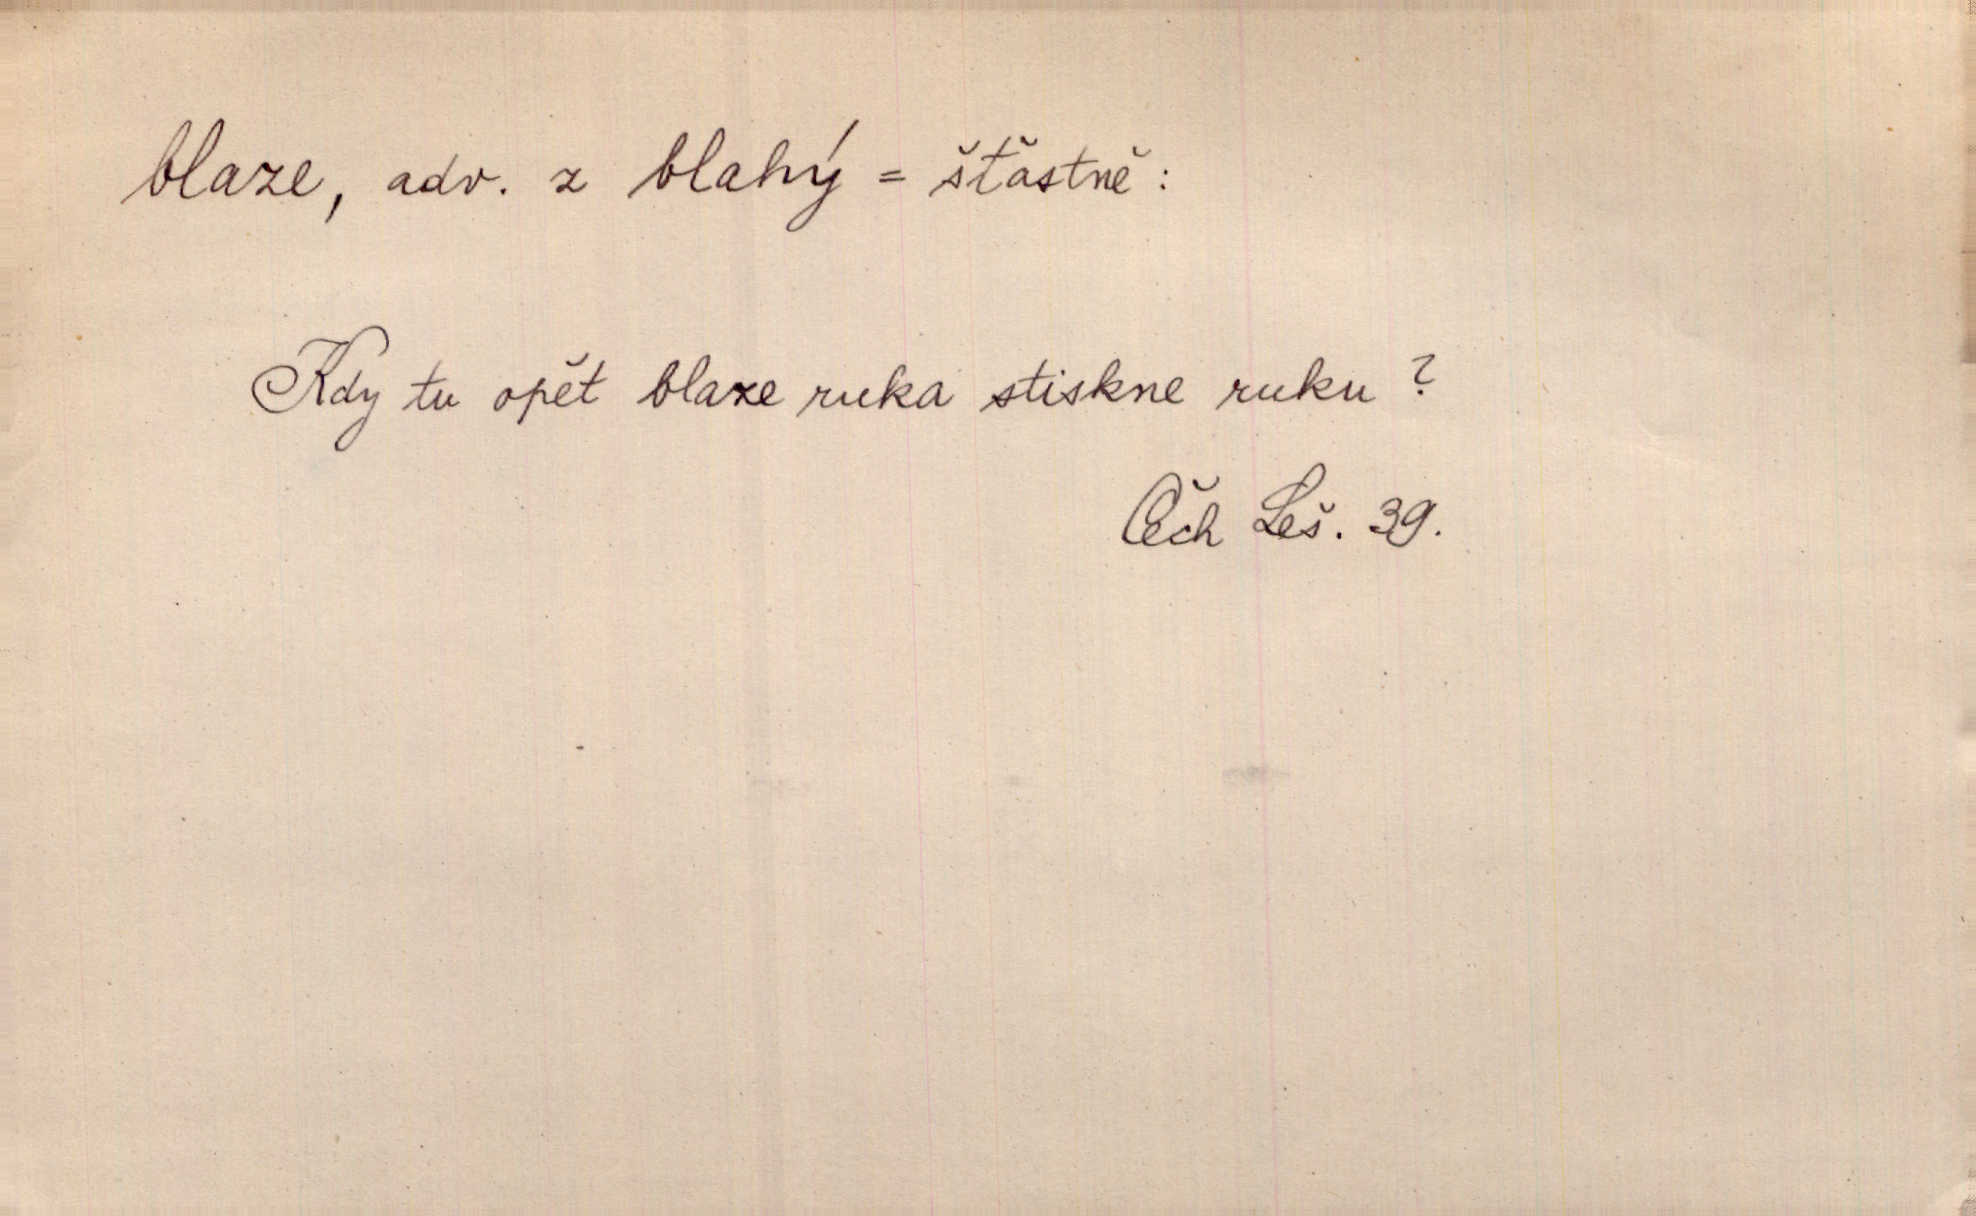 blaze, adv. z blahý = šťastně:
Kdy tu opět blaze ruka stiskne ruku?
Čech Leš. 39.